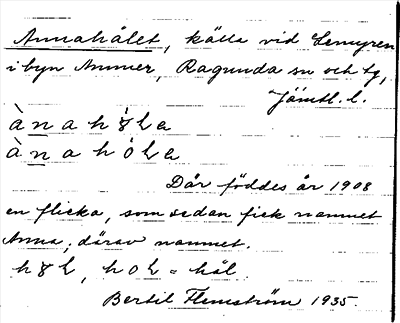 Annahålet, källa vid Lemyren
i byn Ammer, Ragunda sn och tg,
Jämtl. l.
ànahòla
Där föddes år 1908
en flicka, som sedan fick namnet
Anna, därav namnet.
hol = hål.
Bertil Flemström 1935.